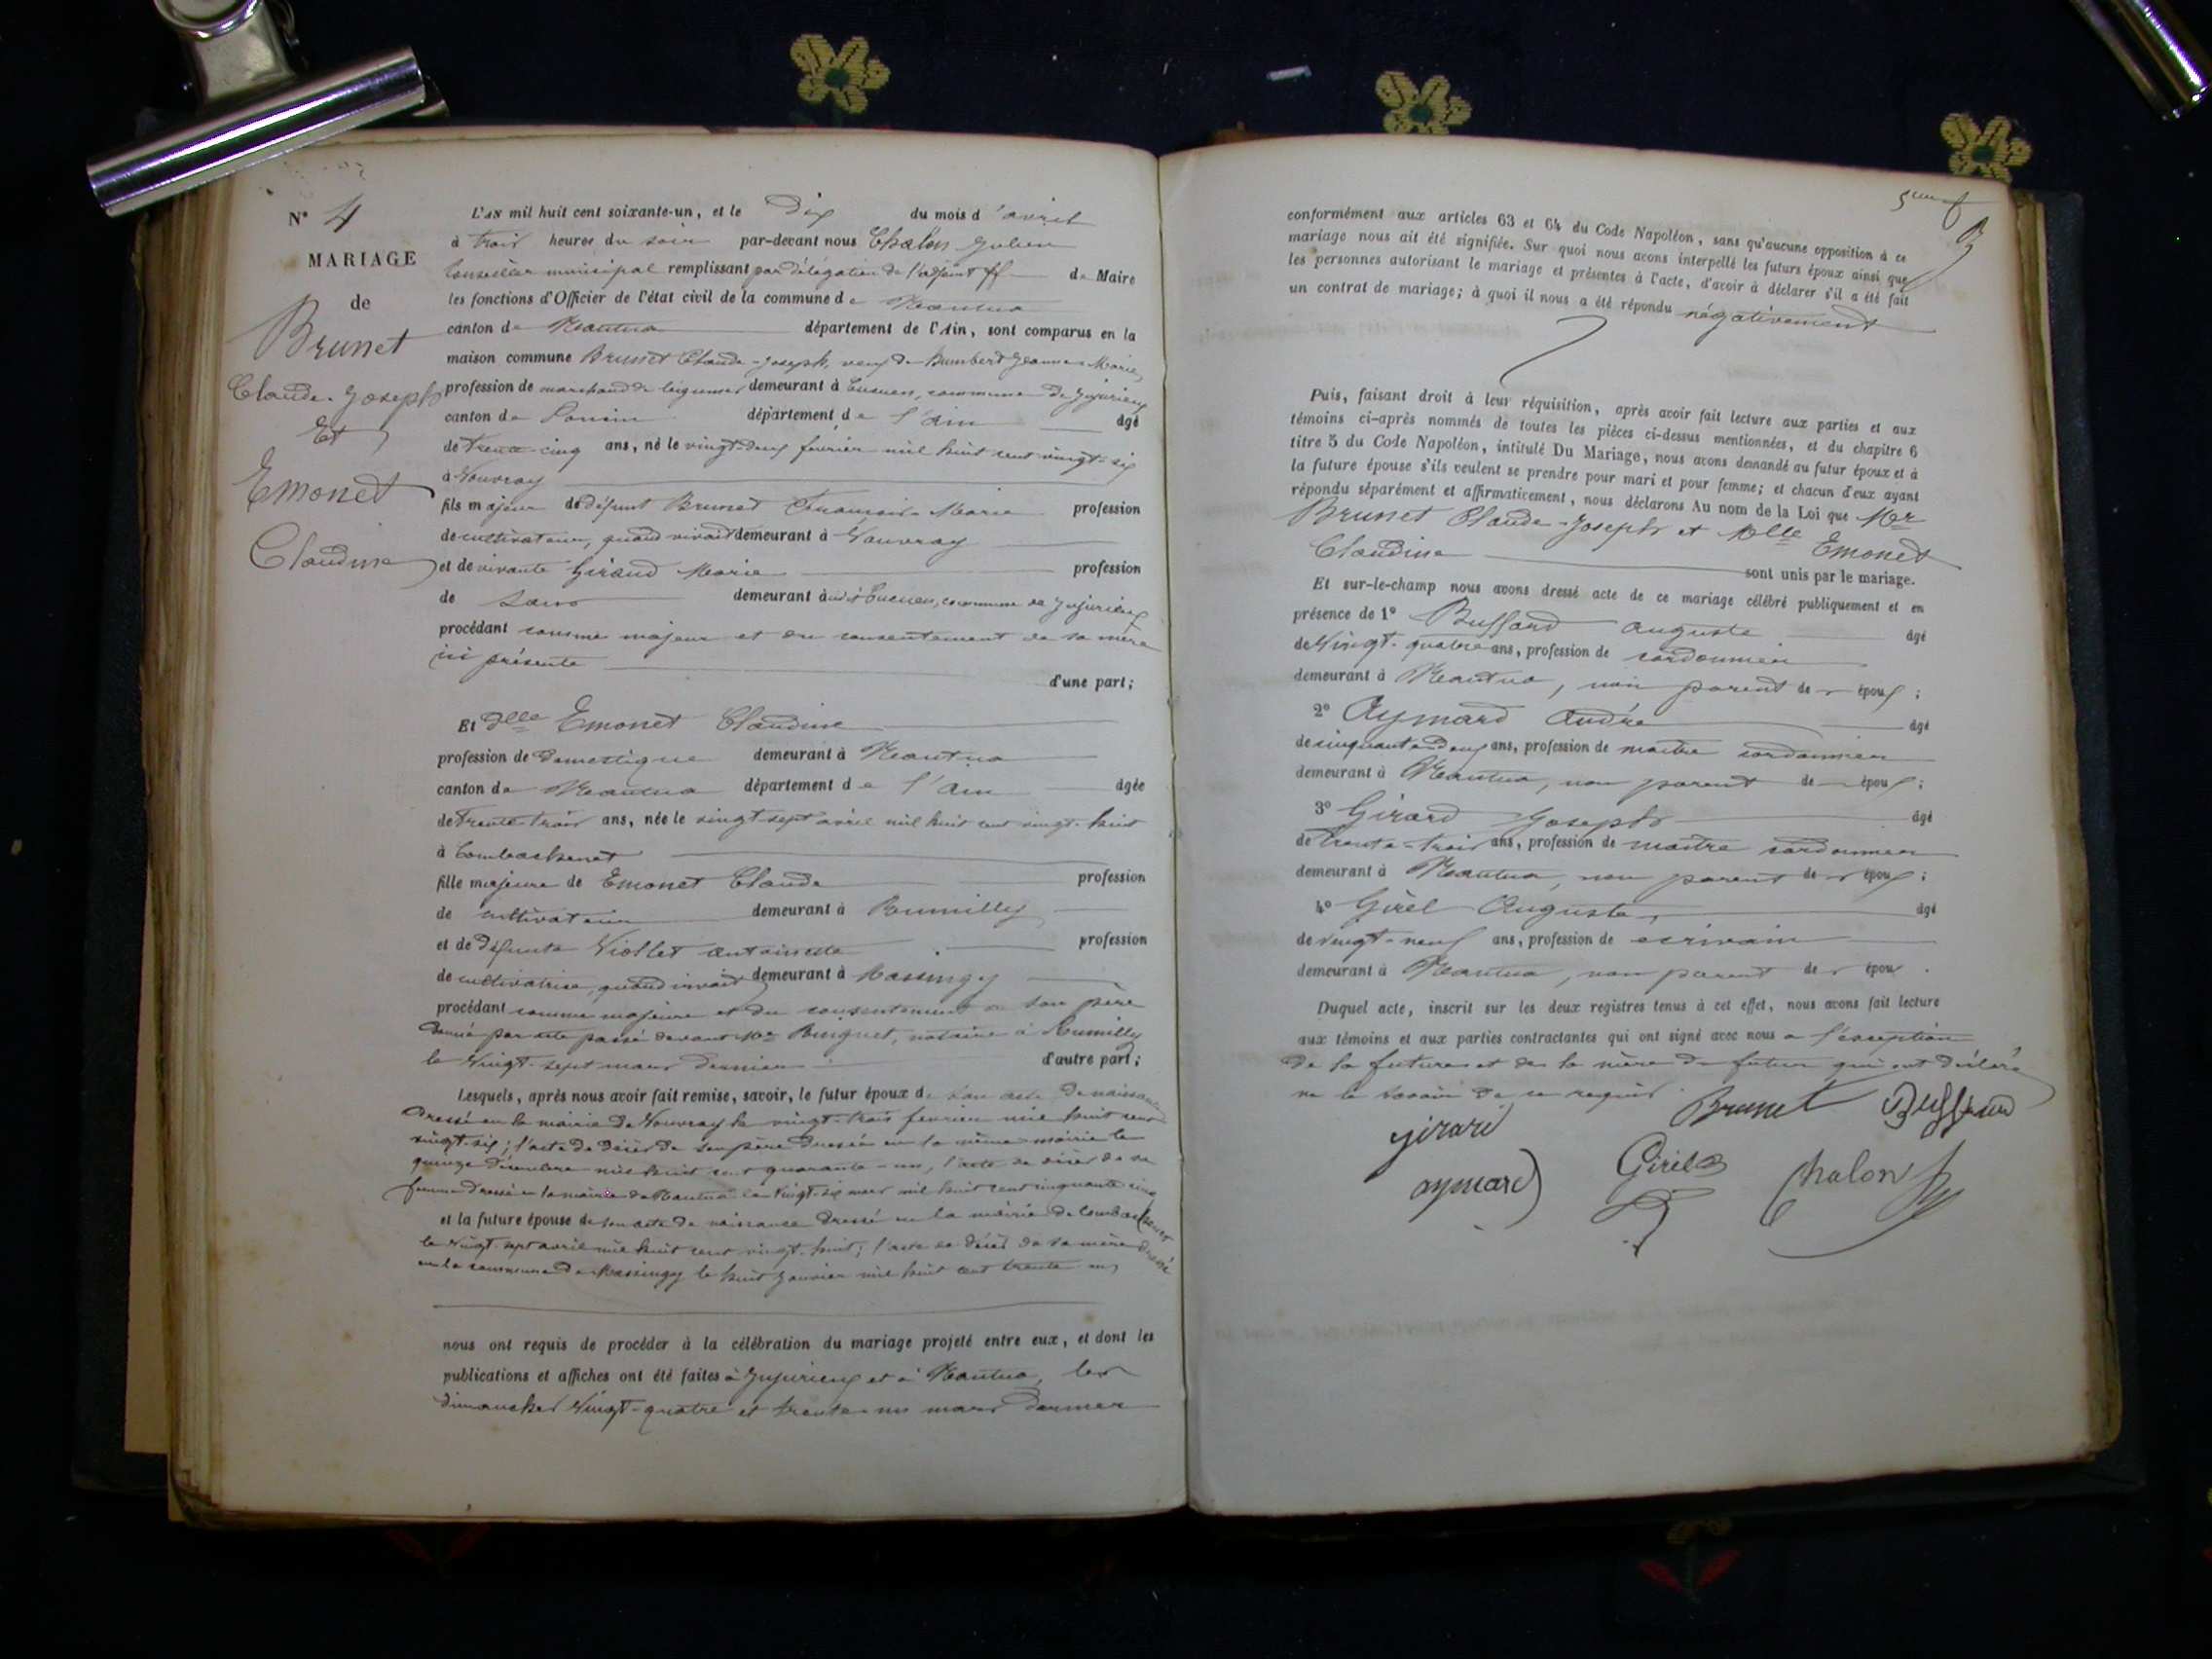 N° 4
MARIAGE
de
Brunet
Claude-Joseph
Et
Emonet
Claudine
L'AN mil huit cent soixante-un, et le Dix du mois d'avril
à trois heures du soir par-devant nous Chalon Julien
Conseiller municipal remplissant par délégation de l'adjoint ff de Maire
les fonctions d'Officier de l'état civil de la commune de Nantua
canton de Nantua département de l'Ain, sont comparus en la
maison commune Brunet Claude-Joseph, veuf de Humbert Jeanne-Marie,
profession de marchand de légumes demeurant à Cucuen, commune de Jujurieux
canton de Poncin département de l'Ain âgé
de trente-cinq ans, né le vingt-deux février mil huit cent vingt-six
à Vouvray
fils majeur de défunt Brunet François-Marie profession
de cultivateur, quand vivait demeurant à Vouvray
et de vivante Giraud Marie profession
de sans demeurant à Cucuen, commune de Jujurieux
procédant comme majeur et du consentement de sa mère
ici présente
d'une part;
Et Dlle Emonet Claudine
profession de domestique demeurant à Nantua
canton de Nantua département de l'Ain âgée
de trente-trois ans, née le vingt-sept avril mil huit cent vingt-huit
à Combachenet
fille majeure de Emonet Claude profession
de cultivateur demeurant à Rumilly
et de défunte Viollet antoinette profession
de cultivatrice, quand vivait demeurant à Massingy
procédant comme majeure et du consentement de son père
donné par acte passé devant Me notaire à Rumilly
le vingt-sept mars dernier d'autre part;
Lesquels, après nous avoir fait remise, savoir, le futur époux de son acte de naissance
dressé en la mairie de Vouvray le vingt-trois février mil huit cent
vingt-six; l'acte de décès de son père dressé en la même mairie le
quinze décembre mil huit cent quarante-un, l'acte de décès de sa
femme dressé en la mairie de Nantua le vingt-six mars mil huit cent cinquante cinq
et la future épouse de son acte de naissance dressé en la mairie de Combachenet
le vingt-sept avril mil huit cent vingt-huit; l'acte de décès de sa mère dressé
en la commune de Massingy le huit janvier mil huit cent trente-un
nous ont requis de procéder à la célébration du mariage projeté entre eux, et dont les
publications et affiches ont été faites à Jujurieux et à Nantua, les
dimanches vingt-quatre et trente-un mars dernier
conformément aux articles 63 et 64 du Code Napoléon, sans qu'aucune opposition à ce
mariage nous ait été signifiée. Sur quoi nous avons interpellé les futurs époux ainsi que
les personnes autorisant le mariage et présentes à l'acte, d'avoir à déclarer s'il a été fait
un contrat de mariage; à quoi il nous a été répondu négativement
Puis, faisant droit à leur réquisition, après avoir fait lecture aux parties et aux
témoins ci-après nommés de toutes les pièces ci-dessus mentionnées, et du chapitre 6
titre 5 du Code Napoléon, intitulé Du Mariage, nous avons demandé au futur époux et à
la future épouse s'ils veulent se prendre pour mari et pour femme; et chacun d'eux ayant
répondu séparément et affirmativement, nous déclarons Au nom de la Loi que Mr
Brunet Claude-Joseph et Melle Emonet
Claudine sont unis par le mariage.
Et sur-le-champ nous avons dressé acte de ce mariage célébré publiquement et en
présence de 1° Buffard auguste âgé
de vingt-quatre ans, profession de cordonnier
demeurant à Nantua, non parent des époux;
2° Aymard André âgé
de cinquante-deux ans, profession de maitre cordonnier
demeurant à Nantua, non parent des époux;
3° Girard Joseph âgé
de trente-trois ans, profession de maître cordonnier
demeurant à Nantua, non parent des époux;
4° Girel Auguste, âgé
de vingt-neuf ans, profession de ecrivain
demeurant à Nantua, non parent des époux.
Duquel acte, inscrit sur les deux registres tenus à cet effet, nous avons fait lecture
aux témoins et aux parties contractantes qui ont signé avec nous a l'exception
de la future et de la mère du futur qui ont déclaré
ne le savoir de ce requis.
Brunet Buffard
girard
Girel
aymard
Chalon